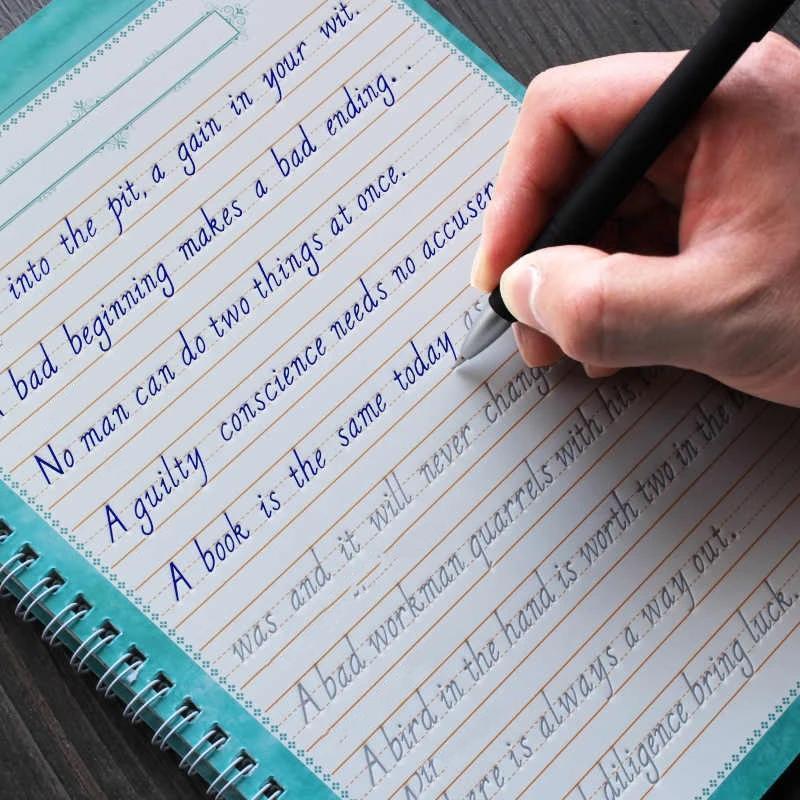 into the pit, a gain in your wit.
bad beginning makes a bad ending.
No man can do two things at once.
A guilty conscience needs no accuser
A book is the same today as
was and it will never change
A bad workman quarrels with his
A bird in the hand is worth two in the
ere is always a way out.
diligence bring luck.